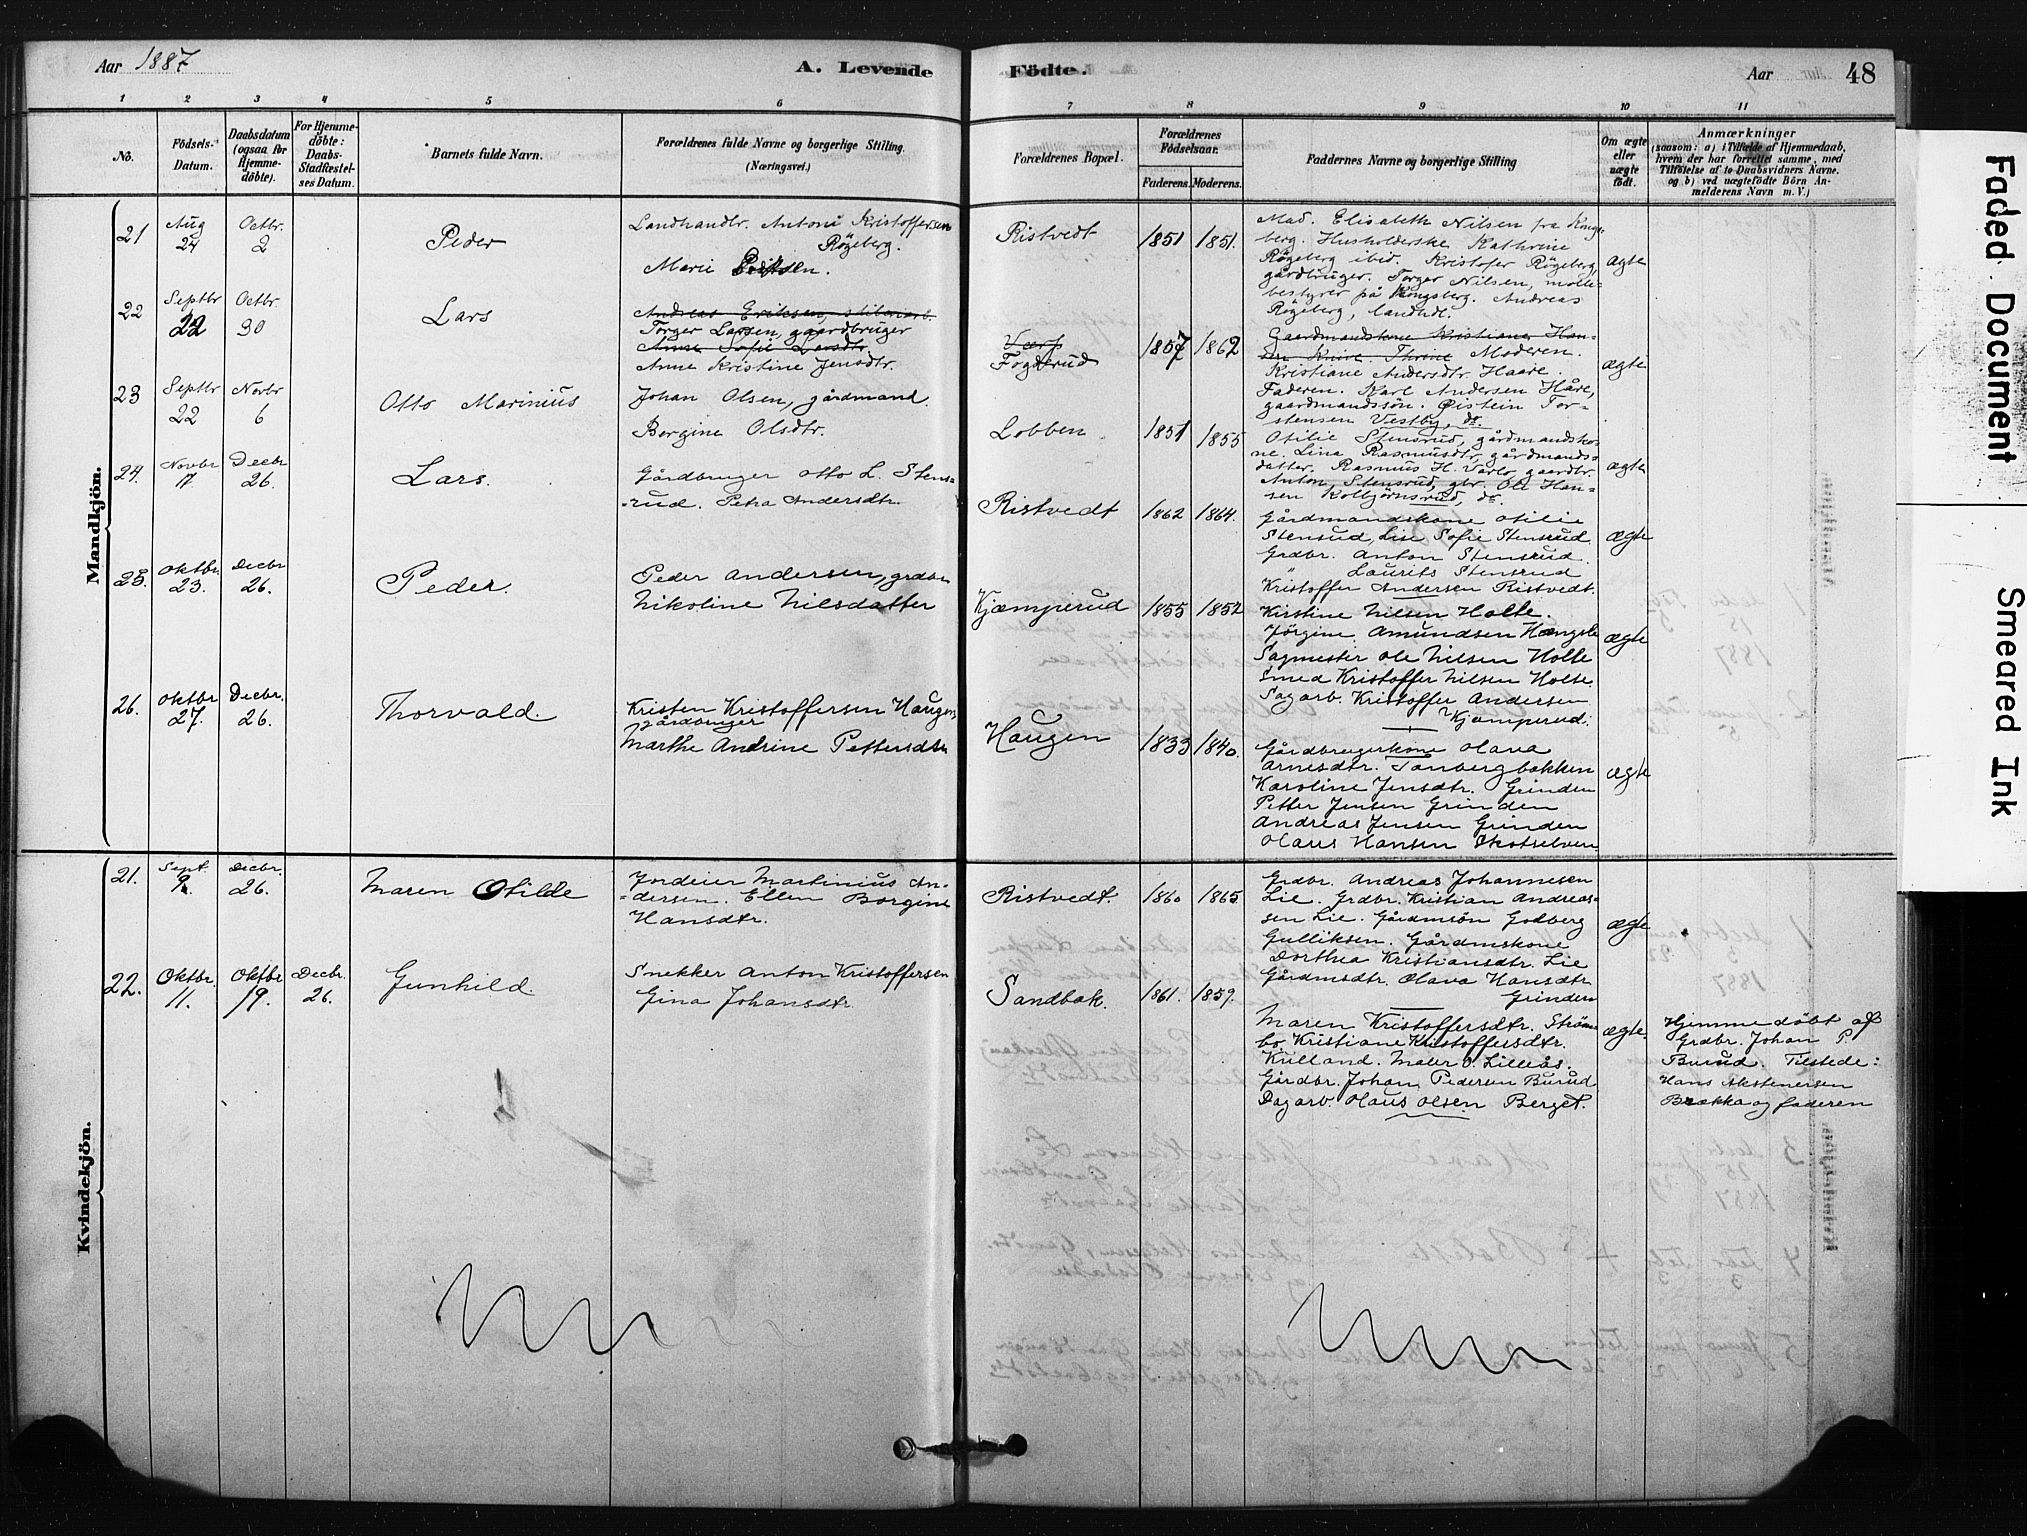 Aar 1887
A. Levende Födte.
Aar 48
1 2 3 4 5 6 7 8 9 10 11
No.
Födsels-Datum.
Daabsdatum (ogsaa for Hjemmedöbte).
For Hjemmedöbte: Daabs-Stadfæstelses Datum.
Barnets fulde Navn.
Forældrenes fulde Navne og borgerlige Stilling. (Næringsvei.)
Forældrenes Bopæl.
Forældrenes Födselsaar.
Faderens. Moderens.
Faddernes Navne og borgerlige Stilling
Om ægte eller uægte födt.
Anmærkninger
(saasom: a) i Tilfælde af Hjemmedaab,
hvem der har forrettet samme, med
Tilföielse af to Daabsvidners Navne,
og b) ved uægtefödte Börn An-
melderens Navn m. V.)
Mandkjön.
21 Aug 24 Octbr. 2 Peder
Landhandlr. Antoni Kristoffersen
Rögeberg.
Marie
Ristvedt 1851 1851.
Mad. Elisabeth Nilsen fra Kongs-
berg. Husholderske Kathrine
Rögeberg ibid. Kristofer Rögeberg,
gårdbruger. Torger Nilsen, mölle-
bestyrer på Kongsberg. Andreas
Rögeberg, landhdl.
ægte
22 Septbr 22 Octbr. 30 Lars
Andreas Eriksen,
Torger Larsen, gaardbruger
Anne Sofie Larsdtr
Anne Kristine Jensdtr.
Fogderud 1857 1862
Gaardmandskone Kristiane Han-
sen Thrine Moderen.
Kristiane Andersdtr. Haare.
Faderen. Karl Andersen Håre,
gaardmandssön. Øistein Tor-
stensen Vestby, do.
ægte
23 Septbr 22 Novbr 6 Otto Marinius
Johan Olsen, gårdmand.
Borgine Olsdtr.
Lobben 1851 1855
Otilie Stensrud, gårdmandsko-
ne. Lina Rasmusdtr, gårdmands-
datter. Rasmus H. Varlo, gaardbr.
Anton Stensrud, gbr. Ole Han-
sen Kolbjørnsrud, do.
ægte
24. Novbr 17 Decbr 26. Lars.
Gårdbruger Otto L. Stens-
-rud. Petra Andersdtr.
Ristvedt 1862 1864.
Gårdmandskone Otilie
Stensrud, Lise Sofie Stensrud
Grdbr. Anton Stensrud.
" Laurits Stensrud
Kristoffer Andersen Ristvedt.
ægte
25. Oktbr. 23. Decbr 26. Peder.
Peder Andersen, grdbr
Nikoline Nilsdatter
Kjæmperud 1855 1852
Kirstine Nilsen Holte.
Jörgine Amundsen Hængsle
Sagmester Ole Nilsen Holte
Smed Kristoffer Nilsen Holte.
Sagarb. Kristoffer Andersen
Kjæmperud.
ægte
26. Oktbr 27. Decbr. 26. Thorvald.
Kristen Kristoffersen Haugen
gårdbruger
Marthe Andrine Pettersdtr
Haugen 1833 1840.
Gårdbrugerkone Olava
Arnesdtr. Tanbergbakken
Karoline Jensdtr. Grinden
Petter Jensen Grinden
Andreas Jensen Grinden
Olaus Hansen Skotselven
ægte
Kvindekjön.
21. Sept. 9. Decbr. 26. Maren Otilde
Jordeier Martinius An-
-dersen. Ellen Borgine
Hansdtr.
Ristvedt. 1860 1865
Grdbr. Andreas Johannesen
Lie. Grdbr. Kristian Andreas-
sen Lie. Gårdmsön Godberg
Gulliksen. Gårdmskone
Dorthea Kristiansdtr. Lie
Gårdmsdtr. Olava Hansdtr
Grinden
ægte
22. Oktbr. 11. Oktbr. 19. Decbr. 26. Gunhild.
Snekker Anton Kristoffersen
Gina Johansdtr.
Sandbak. 1861. 1859.
Maren Kristoffersdtr. Ström-
bo. Kristiane Kristoffersdtr.
Kulland. Maler O. Lilleås.
Gårdbr. Johan Pedersen Burud
Dagarb. Olaus Olsen Berget.
ægte.
Hjemmedöbt af
Grdbr. Johan P.
Burud. Tilstede:
Hans Akstenersen
Brækka og faderen
Faded Document
Smeared Ink